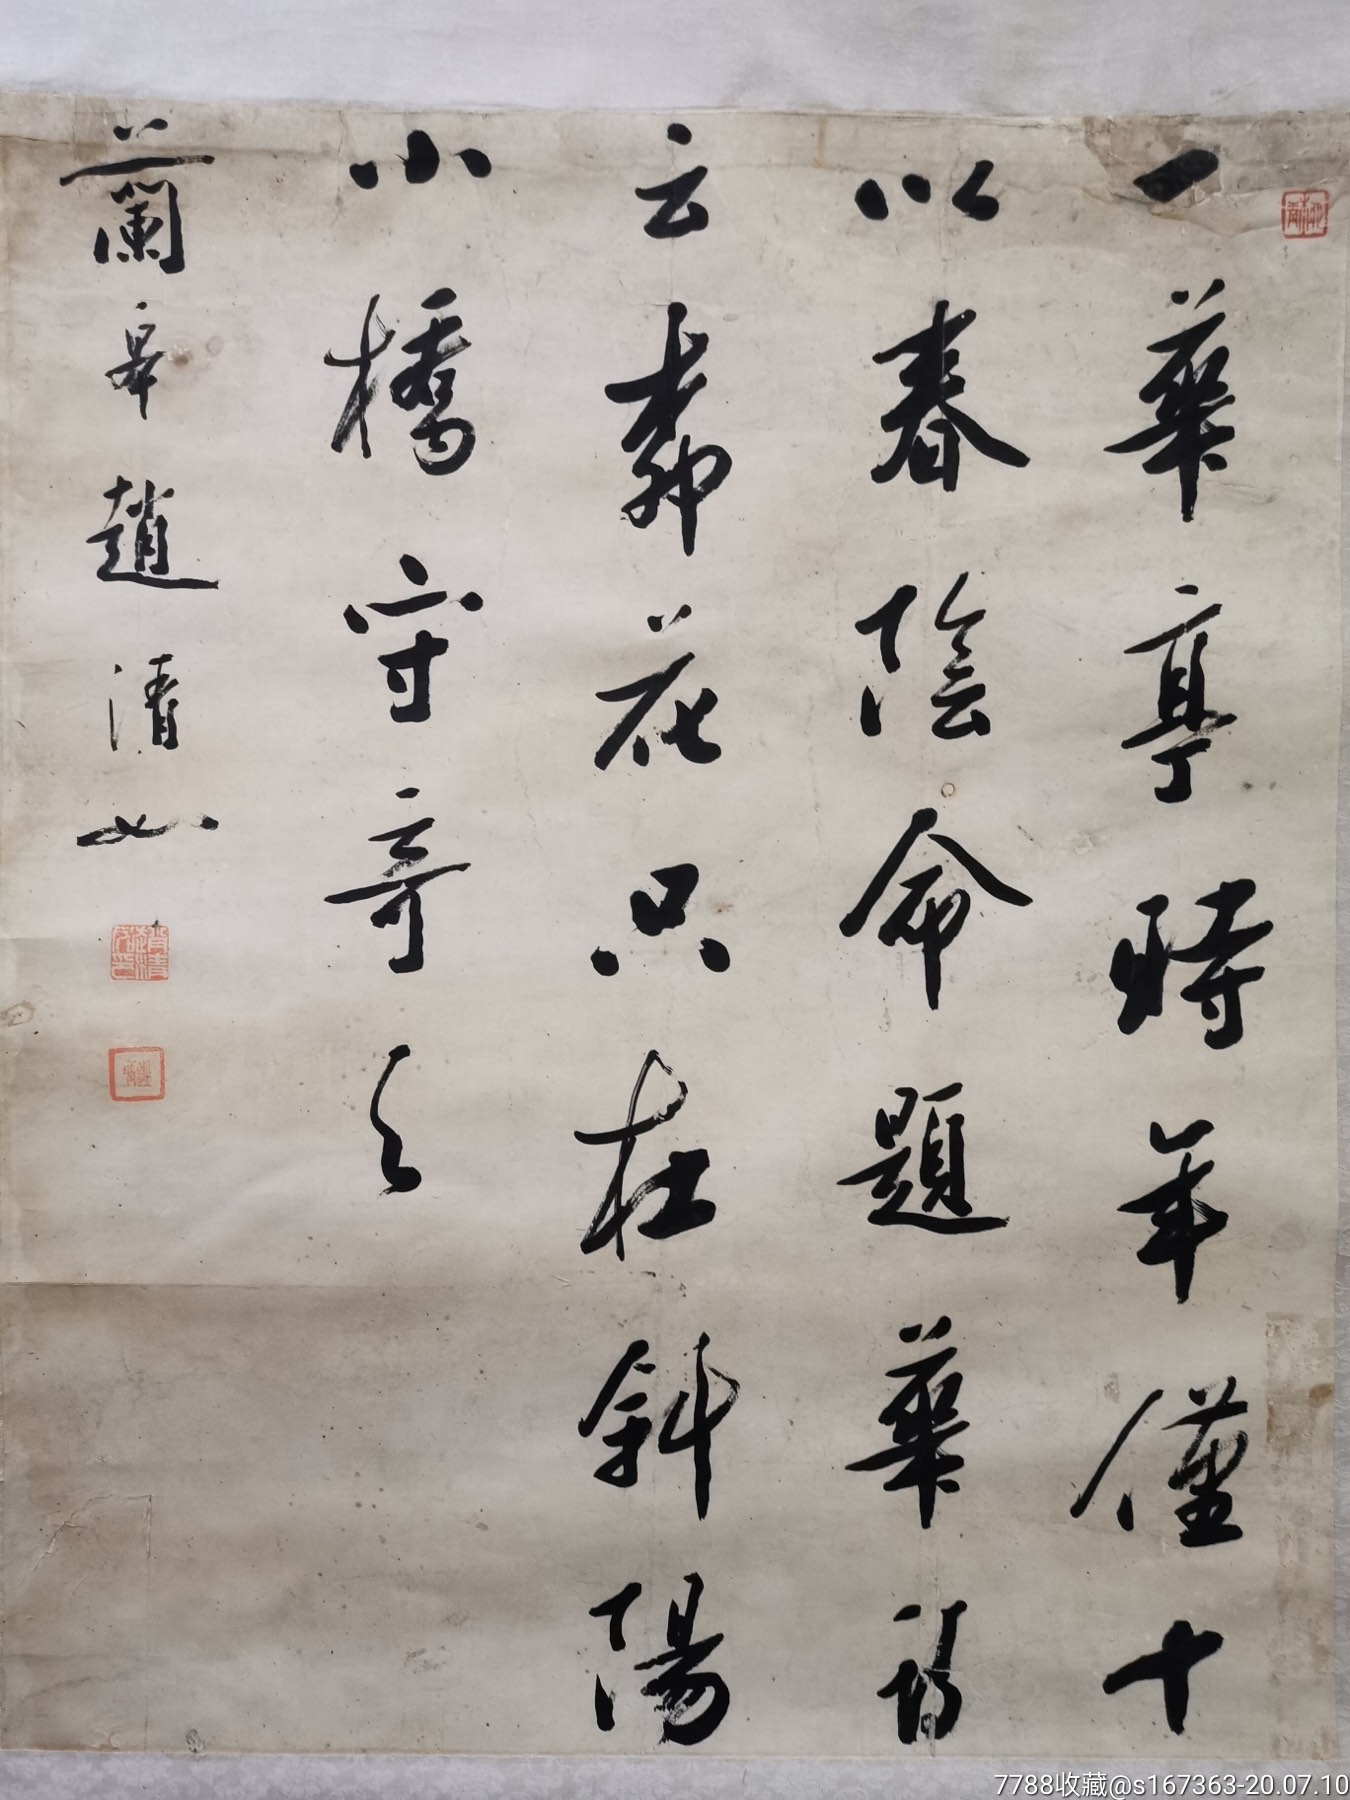 一華亭時年僅十
以春陰命題華詩
云花只在斜陽
小橋守奇之
蘭皋趙清如
7788收藏@s167363-20.07.10